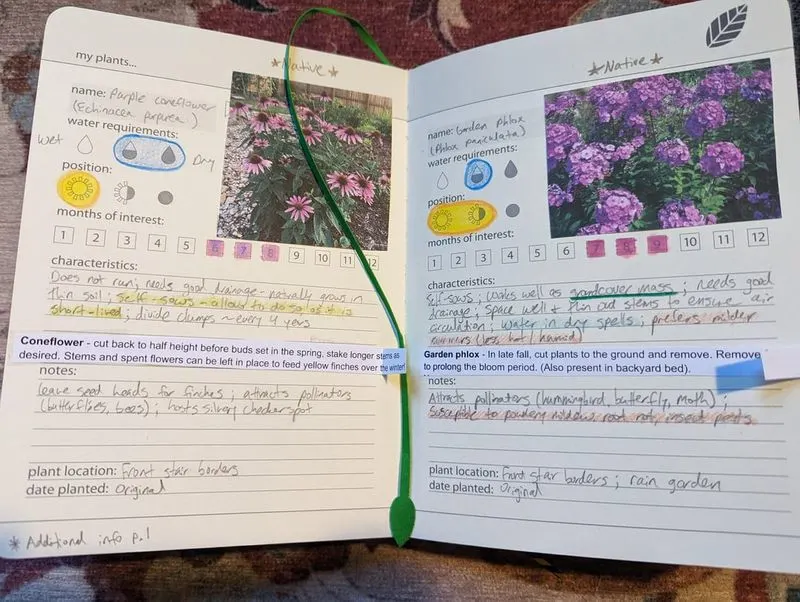 my plants...
*Native*
name: Purple coneflower
(Echinacea purpurea)
water requirements:
Wet
Dry
position:
months of interest:
1 2 3 4 5 6 7 8 9 10 11 12
characteristics:
Does not run; needs good drainage - naturally grows in
thin soil; self-sows - allow to do so as it is
short-lived; divide clumps ~every 4 yers
Coneflower - cut back to half height before buds set in the spring, stake longer stems as
desired. Stems and spent flowers can be left in place to feed yellow finches over the winter!
notes:
leave seed heads for finches; attracts pollinators
(butterflies, bees); hosts silvery checkerspot
plant location: Front stair borders
date planted: Original
* Additional info p.1
*Native*
name: Garden Phlox
(Phlox paniculata)
water requirements:
position:
months of interest:
1 2 3 4 5 6 7 8 9 10 11 12
characteristics:
Self-sows; works well as groundcover mass; needs good
drainage, space well + thin out stems to ensure air
circulation; water in dry spells; prefers milder
summers (less hot/humid)
Garden phlox - In late fall, cut plants to the ground and remove. Remove
to prolong the bloom period. (Also present in backyard bed).
notes:
Attracts pollinators (hummingbird, butterfly, moth);
Susceptible to powdery mildew, root rot, insect pests
plant location: Front stair borders; rain garden
date planted: Original